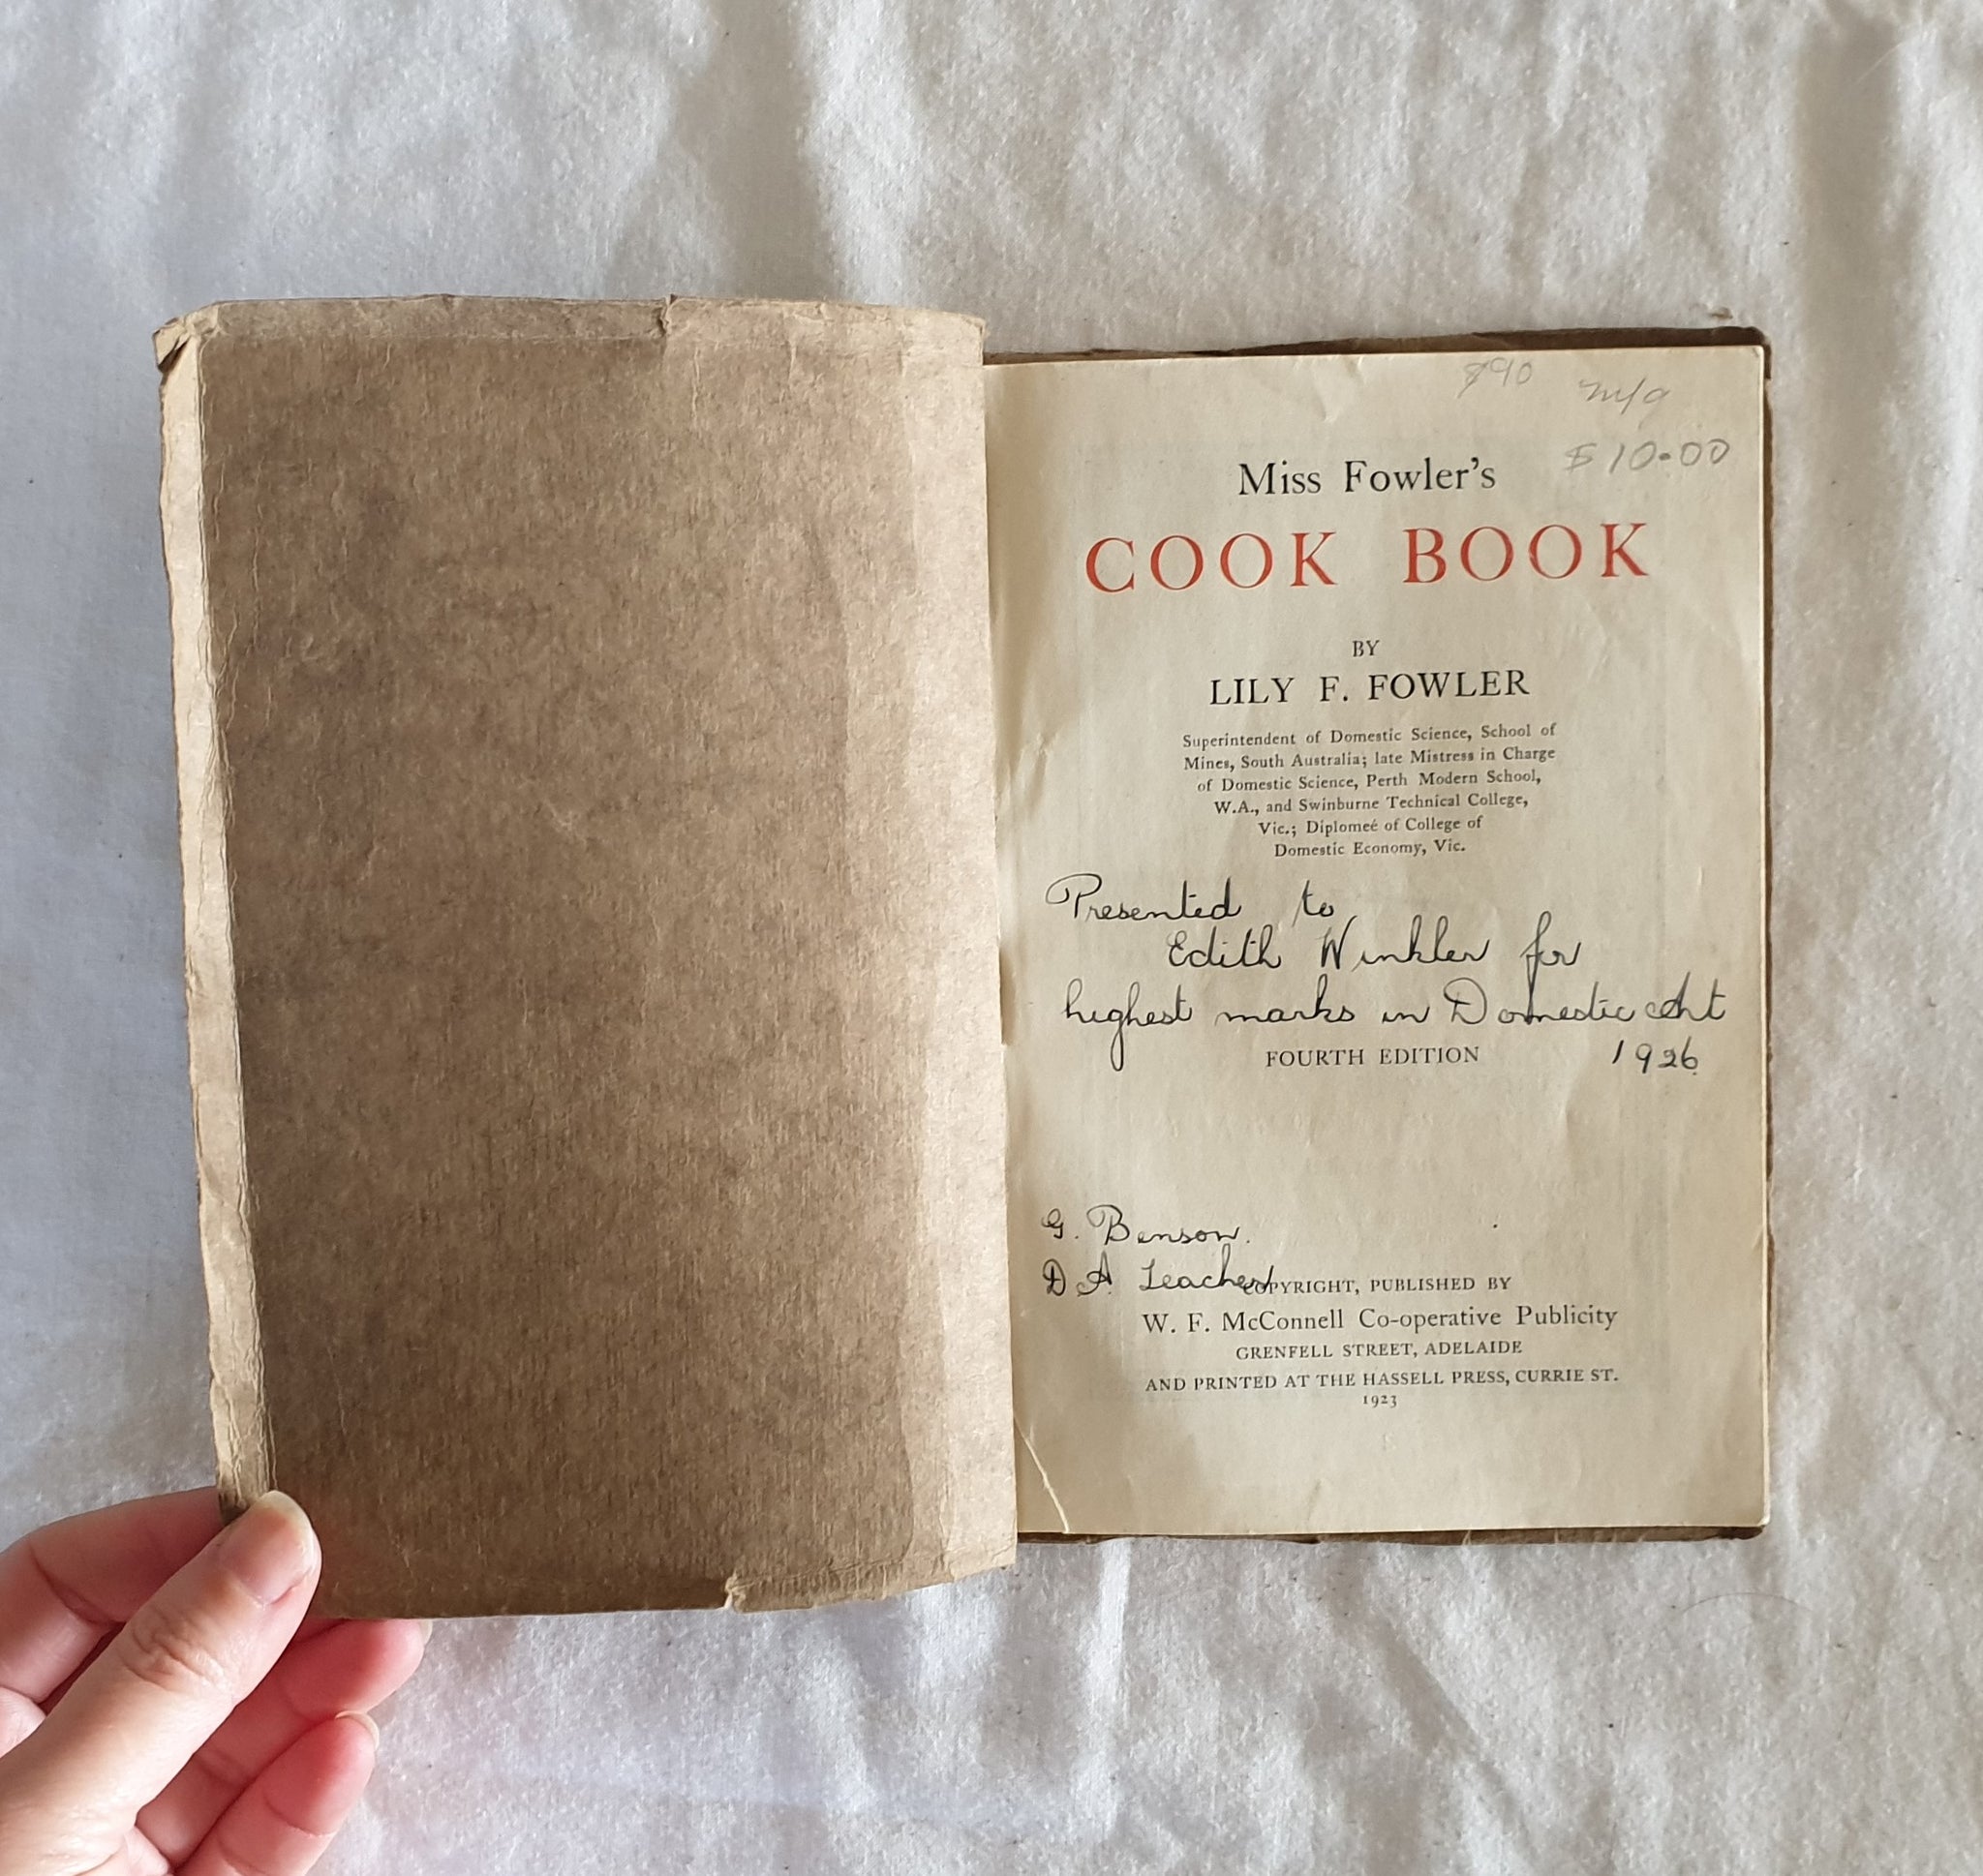 $90 m/a
$10.00
Miss Fowler's
COOK BOOK
BY
LILY F. FOWLER
Superintendent of Domestic Science, School of
Mines, South Australia; late Mistress in Charge
of Domestic Science, Perth Modern School,
W.A., and Swinburne Technical College,
Vic.; Diplomeé of College of
Domestic Economy, Vic.
Presented to
Edith Winkler for
highest marks in Domestic Art
FOURTH EDITION 1926
G. Benson.
D A Teacher
COPYRIGHT, PUBLISHED BY
W. F. McConnell Co-operative Publicity
GRENFELL STREET, ADELAIDE
AND PRINTED AT THE HASSELL PRESS, CURRIE ST.
1923